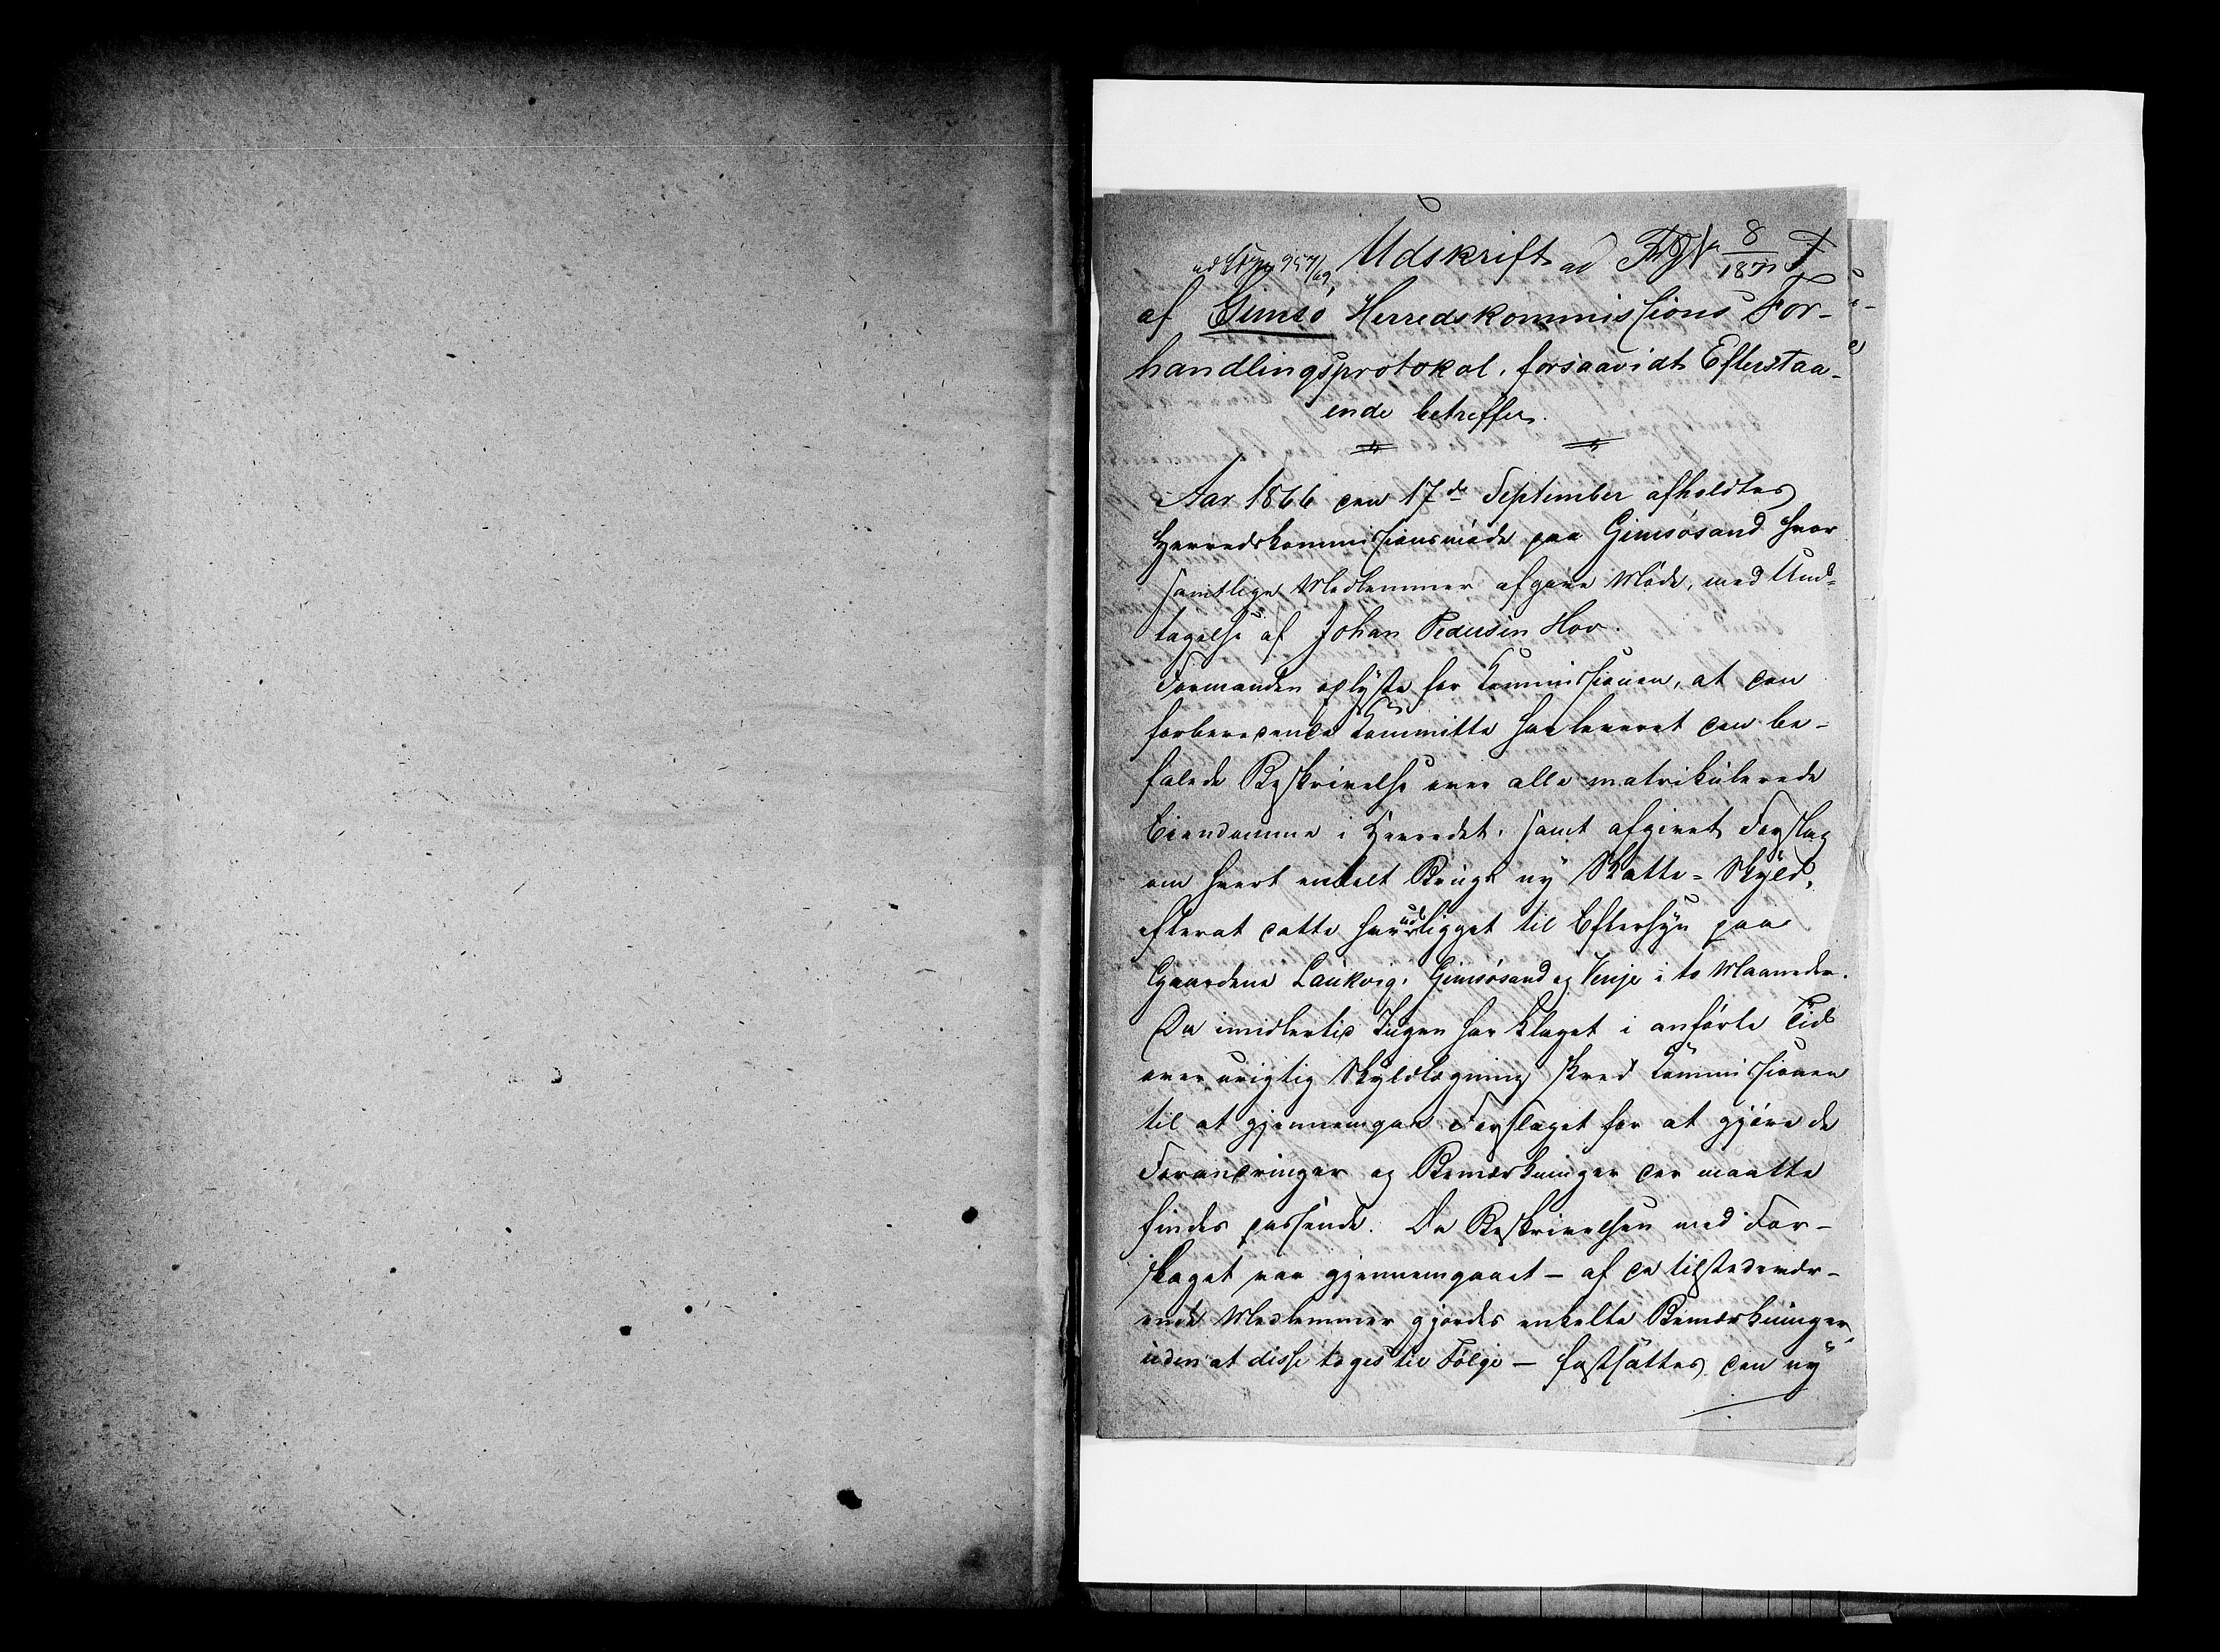 Udskrift ad 8/1871
af Gimsö Herredskommissions For-
handlingsprotokol, forsaavidt Efterstaa-
ende betreffer.
Aar 1866 den 17de September afholdtes
Herredskommissionsmöde paa Gimsösand hvor
samtlige Medlemmer afgave Möde, med Und-
tagelse af Johan Pedersen Hov.
Formanden oplyste for Kommissionen, at den
forberedende Kommitte har leveret den be-
falede Beskrivelse over alle matrikulerede
Eiendomme i Herredet, samt afgivet Forslag
om hvert enkelt Brugs ny Skatte-Skyld,
efterat dette har udligget til Eftersyn paa
Gaardene Laukvig, Gimsösand og Venje i to Maaneder.
Da imidlertid Ingen har klaget i anförte Tid
over urigtig Skyldlægning skred Kommissionen
til at gjennemgaa Forslaget for at gjöre de
Forandringer og Bemærkninger der maatte
findes passende. Da Beskrivelsen med For-
slaget var gjennemgaaet – af de tilstedevær-
ende Medlemmer gjordes enkelte Bemærkninger,
uden at disse toges til Fölge – fastsattes den ny